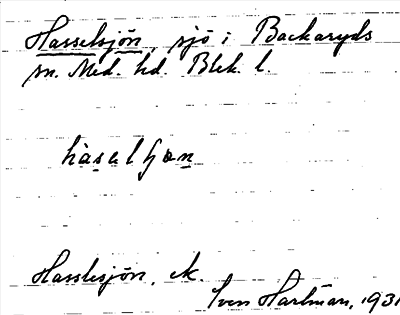 Hasselsjön, sjö i Backaryds
sn. Med. hd. Blek. l.
hàsəlʃøn
Hasslesjön, ek.
Sven Hartman, 1931